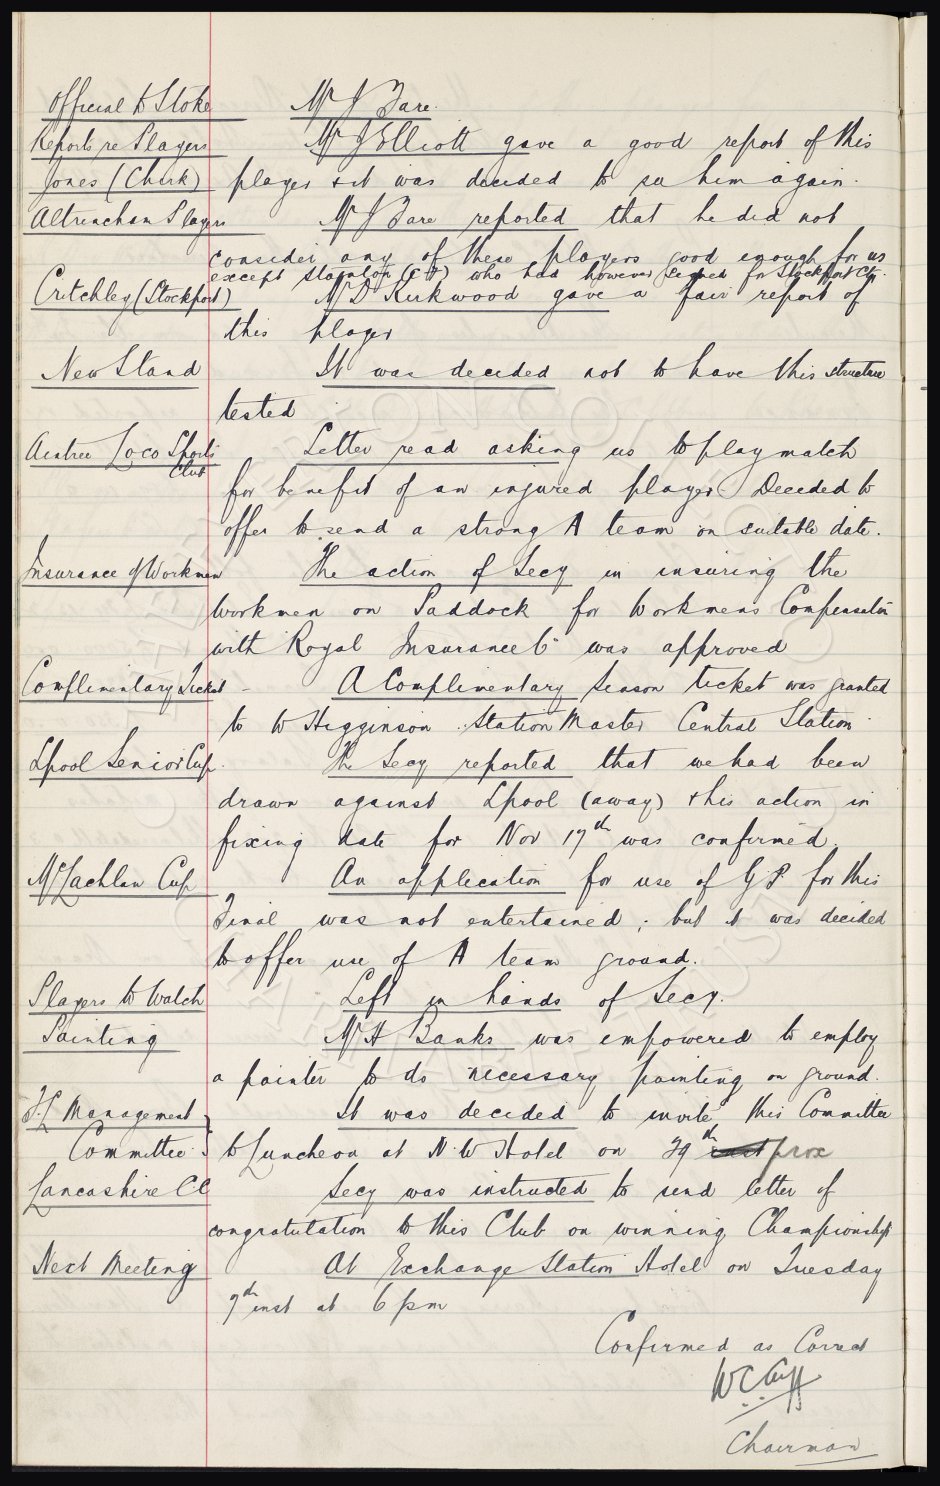 Official to Stoke Mr J Fare.
Reports re Players Mr J Elliott gave a good report of this
Jones (Chirk) player & it was decided to see him again.
Altrincham Players Mr J Fare reported that he did not
consider any of these players good enough for us
except Stainton (C F) who had however signed for Stockport Cty.
Critchley (Stockport) Mr D Kirkwood gave a fair report of
this player
New Stand It was decided not to have this structure
tested
Aintree Loco Sports Letter read asking us to play match
Club
for benefit of an injured player. Decided to
offer to send a strong A team on suitable date.
Insurance of Workmen The action of Secy in insuring the
workmen on Paddock for Workmens Compensation
with Royal Insurance Co was approved
Complimentary Ticket - A Complimentary Season ticket was granted
to W Higginson Station Master Central Station
Lpool Senior Cup. The Secy reported that we had been
drawn against Lpool (away) & his action in
fixing date for Nov 17th was confirmed.
McLachlan Cup An application for use of G P. for this
Final was not entertained; but it was decided
to offer use of A team ground.
Players to Watch Left in hands of Secy.
Painting Mr A Banks was empowered to employ
a painter to do necessary painting on ground.
F.L Management It was decided to invite this Committee
Committee to Luncheon at N.W Hotel on 29th prox
Lancashire CC Secy was instructed to send letter of
congratulation to this Club on winning Championship
Next Meeting At Exchange Station Hotel on Tuesday
7th inst at 6 pm
Confirmed as Correct
W C Cuff
Chairman